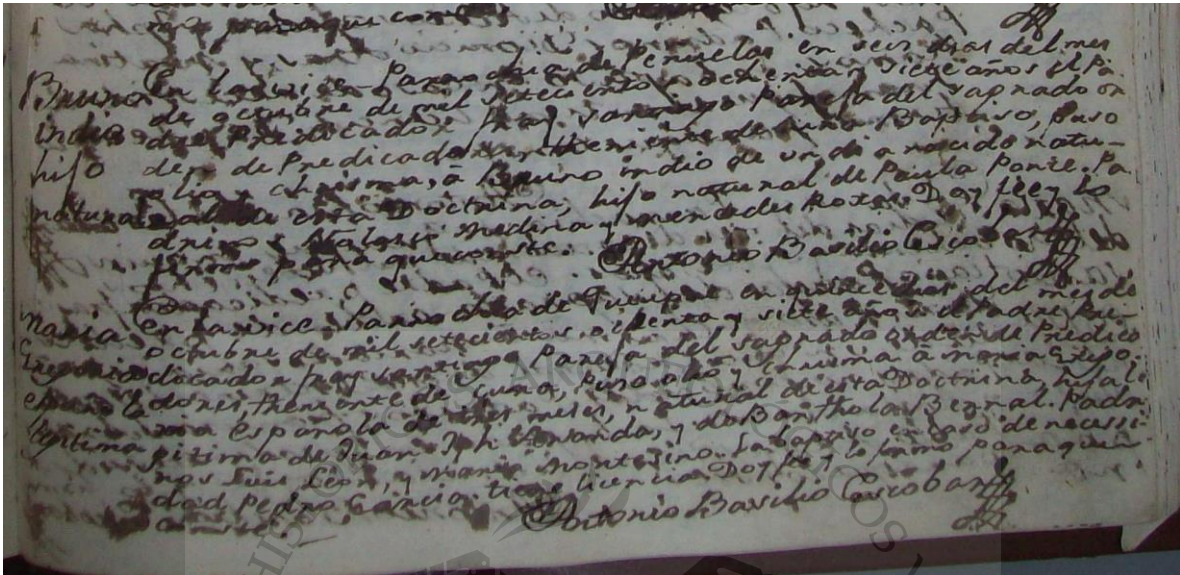 para que conste
Bruno En la vice Parrochia de Penuelas en seis dias del mes
de octubre de mil setecientos ochenta y siete años el Pa-
indio dre Predicador fray Santiago Pareja del sagrado or
hijo den de Predicadores theniente de cura Baptiso, puso
olio y chrisma, à Bruno indio de un dia nacido natu-
natural ral de esta Doctrina, hijo natural de Paula Ponte. Pa
drinos Medina y mercedes Roxas. Doy fee y lo
firmo para que conste. Antonio Basilio Escobar
En la vice Parrochia de en dias del mes de
Maria octubre de mil setecientos ochenta y siete años el Padre Pre-
Gregoria dicador fray Santiago Pareja del sagrado orden de Predica
dores, theniente de cura, puso oleo y chrisma a Maria Grego-
española ria española de tres meses, natural de esta Doctrina, hija le
lexitima gitima de Juan Jph. Aranda, y de Barthola Bernal. Padri
nos Luis Leon, y Maria Montesino. La baptiso en caso de necessi-
dad Pedro Garcia tiene licencia Doy fee y lo firmo para que
conste. Antonio Basilio Escobar